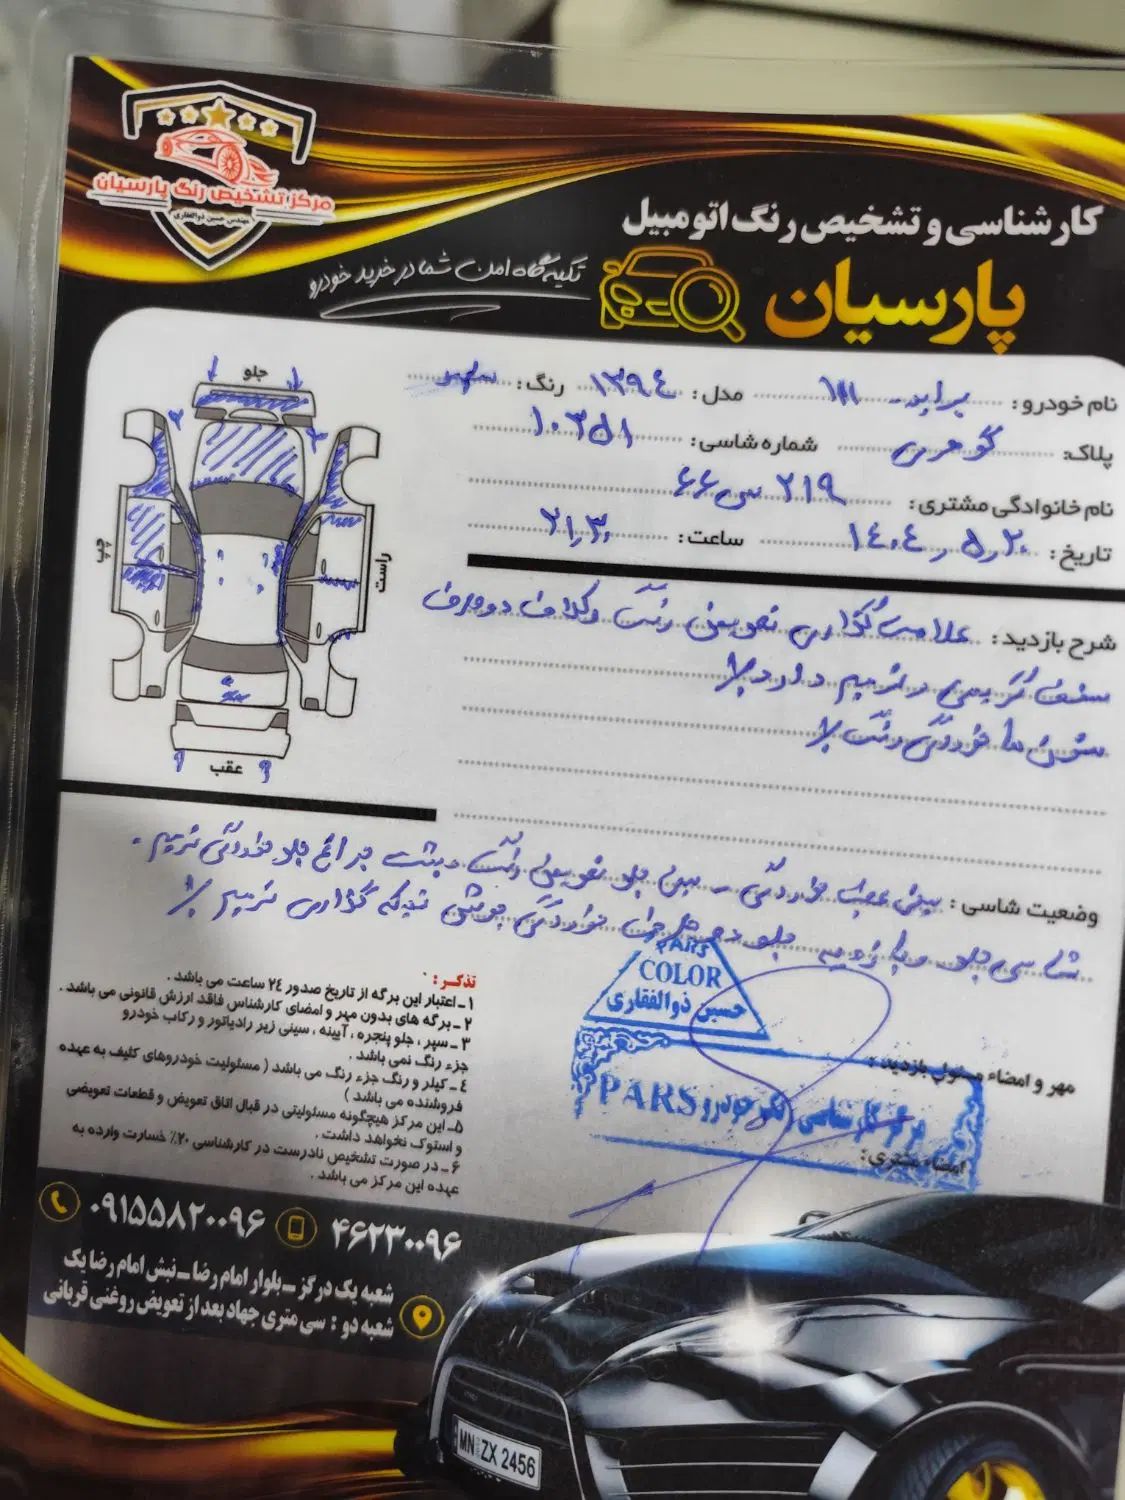 مرکز تشخیص رنگ پارسیان
مهندس حسین ذوالفقاری
کارشناسی و تشخیص رنگ اتومبیل
پارسیان
تکیه گاه امن شما در خرید خودرو
نام خودرو: پراید ۱۱۱ مدل: ۱۳۹۴ رنگ: سفید
پلاک: شماره شاسی: ۱۰۳۵۱
نام خانوادگی مشتری: ۲۱۹ س ۶۶
تاریخ: ۱۴۰۴٫۵٫۲۰ ساعت: ۲۱٫۳۰
جلو
چپ
راست
عقب
شرح بازدید: علامت گذاری تعویض رنگ و کلاف دو طرف
سقف ترمیم دارد
ستون ها خوردگی رنگ
وضعیت شاسی: سینی عقب خوردگی - سینی جلو تعویض رنگ و پشت چراغ جلو خوردگی ترمیم.
شاسی جلو و پا رودری جلو خوردگی تیکه گذاری ترمیم
تذکر:
۱ـ اعتبار این برگه از تاریخ صدور ۲۴ ساعت می باشد .
۲ـ برگه های بدون مهر و امضای کارشناس فاقد ارزش قانونی می باشد .
۳ـ سپر ، جلو پنجره ، آیینه ، سینی زیر رادیاتور و رکاب خودرو
جزء رنگ نمی باشد .
۴ـ کیلر و رنگ جزء رنگ می باشد ( مسئولیت خودروهای کلیف به عهده
فروشنده می باشد )
۵ـ این مرکز هیچگونه مسئولیتی در قبال اتاق تعویض و قطعات تعویضی
و استوک نخواهد داشت .
۶ـ در صورت تشخیص نادرست در کارشناسی ۲۰٪ خسارت وارده به
عهده این مرکز می باشد .
PARS
COLOR
حسین ذوالفقاری
مهر و امضاء مسئول بازدید :
مرکز کارشناسی خودرو PARS
امضاء مشتری:
۰۹۱۵۵۸۲۰۰۹۶ ۴۶۲۳۰۰۹۶
شعبه یک درگز ـ بلوار امام رضا ـ نبش امام رضا یک
شعبه دو : سی متری جهاد بعد از تعویض روغنی قربانی
MN ZX 2456